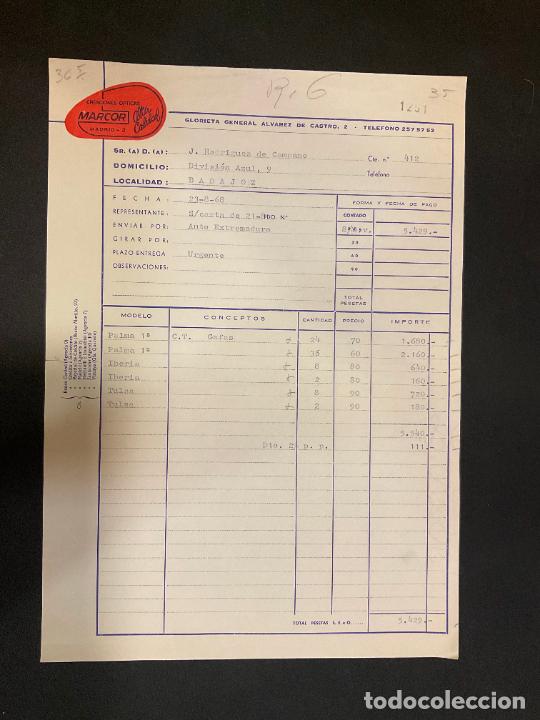 36
R. 6
35
1231
CREACIONES OPTICAS
MARCOR
Alta Calidad
MADRID - 2
GLORIETA GENERAL ALVAREZ DE CASTRO, 2 - TELEFONO 2575752
SR. (A) D. (A): J. Rodriguez de Campano Cte. nº 412
DOMICILIO: División Azul, 9 Teléfono
LOCALIDAD: BADAJOZ
FECHA: 23-8-68 FORMA Y FECHA DE PAGO
REPRESENTANTE: S/carta de 21-8 PDO. Nº CONTADO
ENVIAR POR: Auto Extremadura 5.429.-
GIRAR POR: 30
PLAZO ENTREGA Urgente 60
OBSERVACIONES: 90
TOTAL PESETAS
MODELO CONCEPTOS CANTIDAD PRECIO IMPORTE
Palma 1ª C.T. Gafas 24 70 1.680.-
Palma 1ª 36 60 2.160.-
Iberia 8 80 640.-
Iberia 2 80 160.-
Tulsa 8 90 720.-
Tulsa 2 90 180.-
5.540.-
Dto. 2% p. p. 111.-
TOTAL PESETAS I. E o O. 5.429.-
todocoleccion